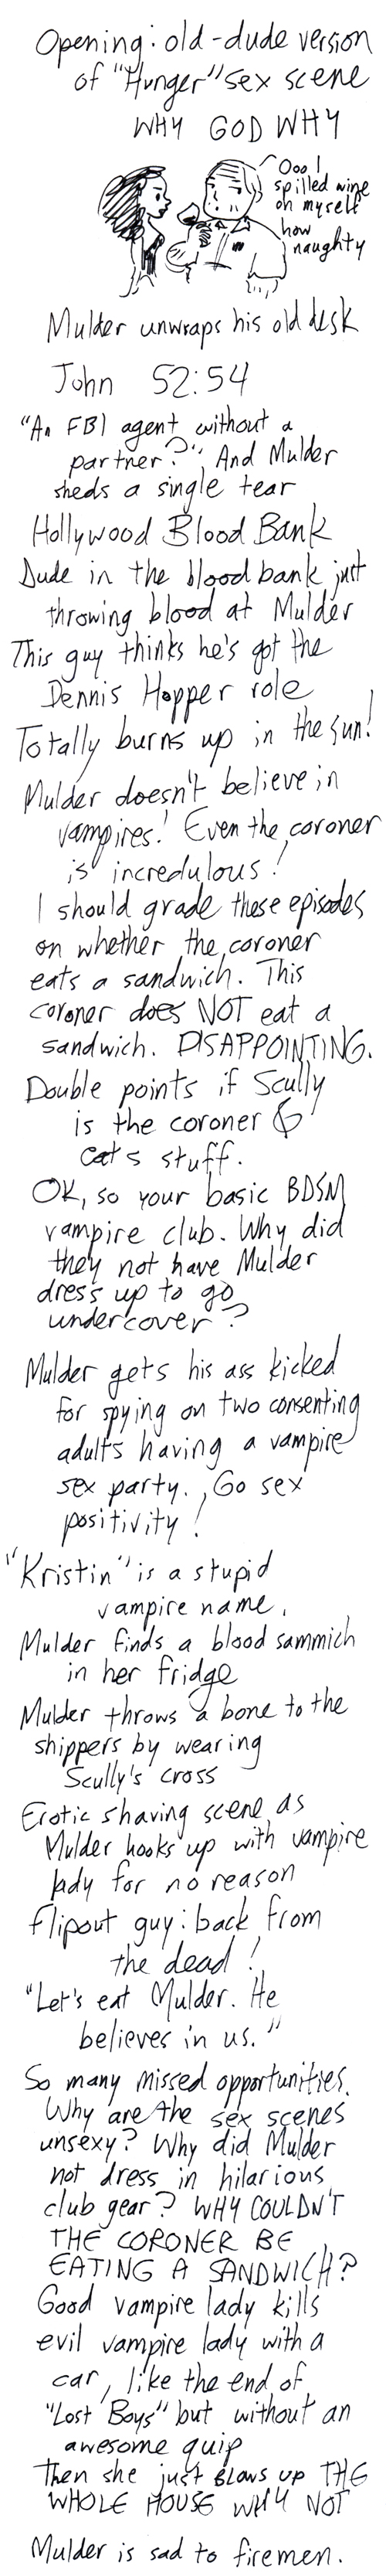 Opening: old-dude version
of "Hunger" sex scene
WHY GOD WHY
Ooo I
spilled wine
on myself
how
naughty
Mulder unwraps his old desk
John 52:54
"An FBI agent without a
partner?" And Mulder
sheds a single tear
Hollywood Blood Bank
Dude in the blood bank just
throwing blood at Mulder
This guy thinks he's got the
Dennis Hopper role
Totally burns up in the sun!
Mulder doesn't believe in
vampires! Even the coroner
is incredulous!
I should grade these episodes
on whether the coroner
eats a sandwich. This
coroner does NOT eat a
sandwich. DISAPPOINTING.
Double points if Scully
is the coroner &
eats stuff.
OK, so your basic BDSM
vampire club. Why did
they not have Mulder
dress up to go
undercover?
Mulder gets his ass kicked
for spying on two consenting
adults having a vampire
sex party. Go sex
positivity!
"Kristin" is a stupid
vampire name.
Mulder finds a blood sammich
in her fridge
Mulder throws a bone to the
shippers by wearing
Scully's cross
Erotic shaving scene as
Mulder hooks up with vampire
lady for no reason
Flipout guy: back from
the dead!
"Let's eat Mulder. He
believes in us."
So many missed opportunities.
Why are the sex scenes
unsexy? Why did Mulder
not dress in hilarious
club gear? WHY COULDN'T
THE CORONER BE
EATING A SANDWICH?
Good vampire lady kills
evil vampire lady with a
car, like the end of
"Lost Boys" but without an
awesome quip
Then she just BLOWS UP THE
WHOLE HOUSE WHY NOT
Mulder is sad to firemen.